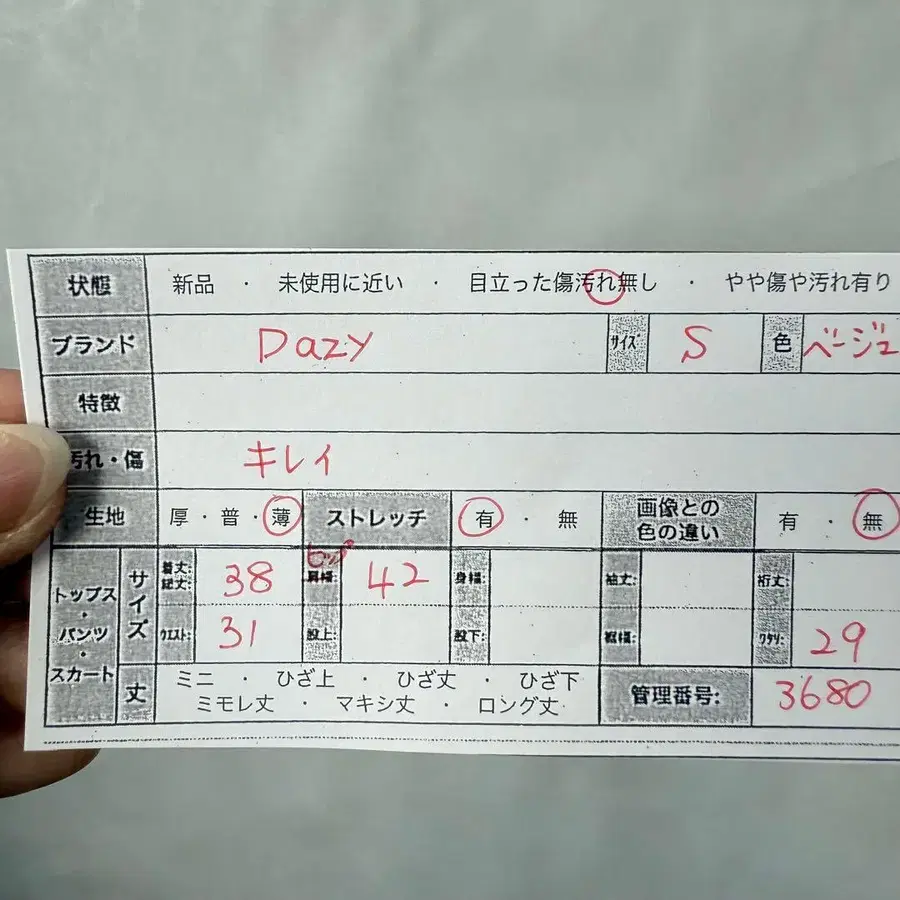 状態 新品 ・ 未使用に近い ・ 目立った傷汚れ無し ・ やや傷や汚れ有り
ブランド Dazy サイズ S 色 ベージュ
特徴
汚れ・傷 キレイ
生地 厚・普・薄 ストレッチ 有・無 画像との色の違い 有・無
トップス・パンツ・スカート サイズ 着丈: 総丈: 38 ヒップ 肩幅: 42 身幅: 袖丈: 裄丈:
ウエスト: 31 股上: 股下: 裾幅: ワタリ: 29
丈 ミニ ・ ひざ上 ・ ひざ丈 ・ ひざ下
ミモレ丈 ・ マキシ丈 ・ ロング丈 管理番号: 3680